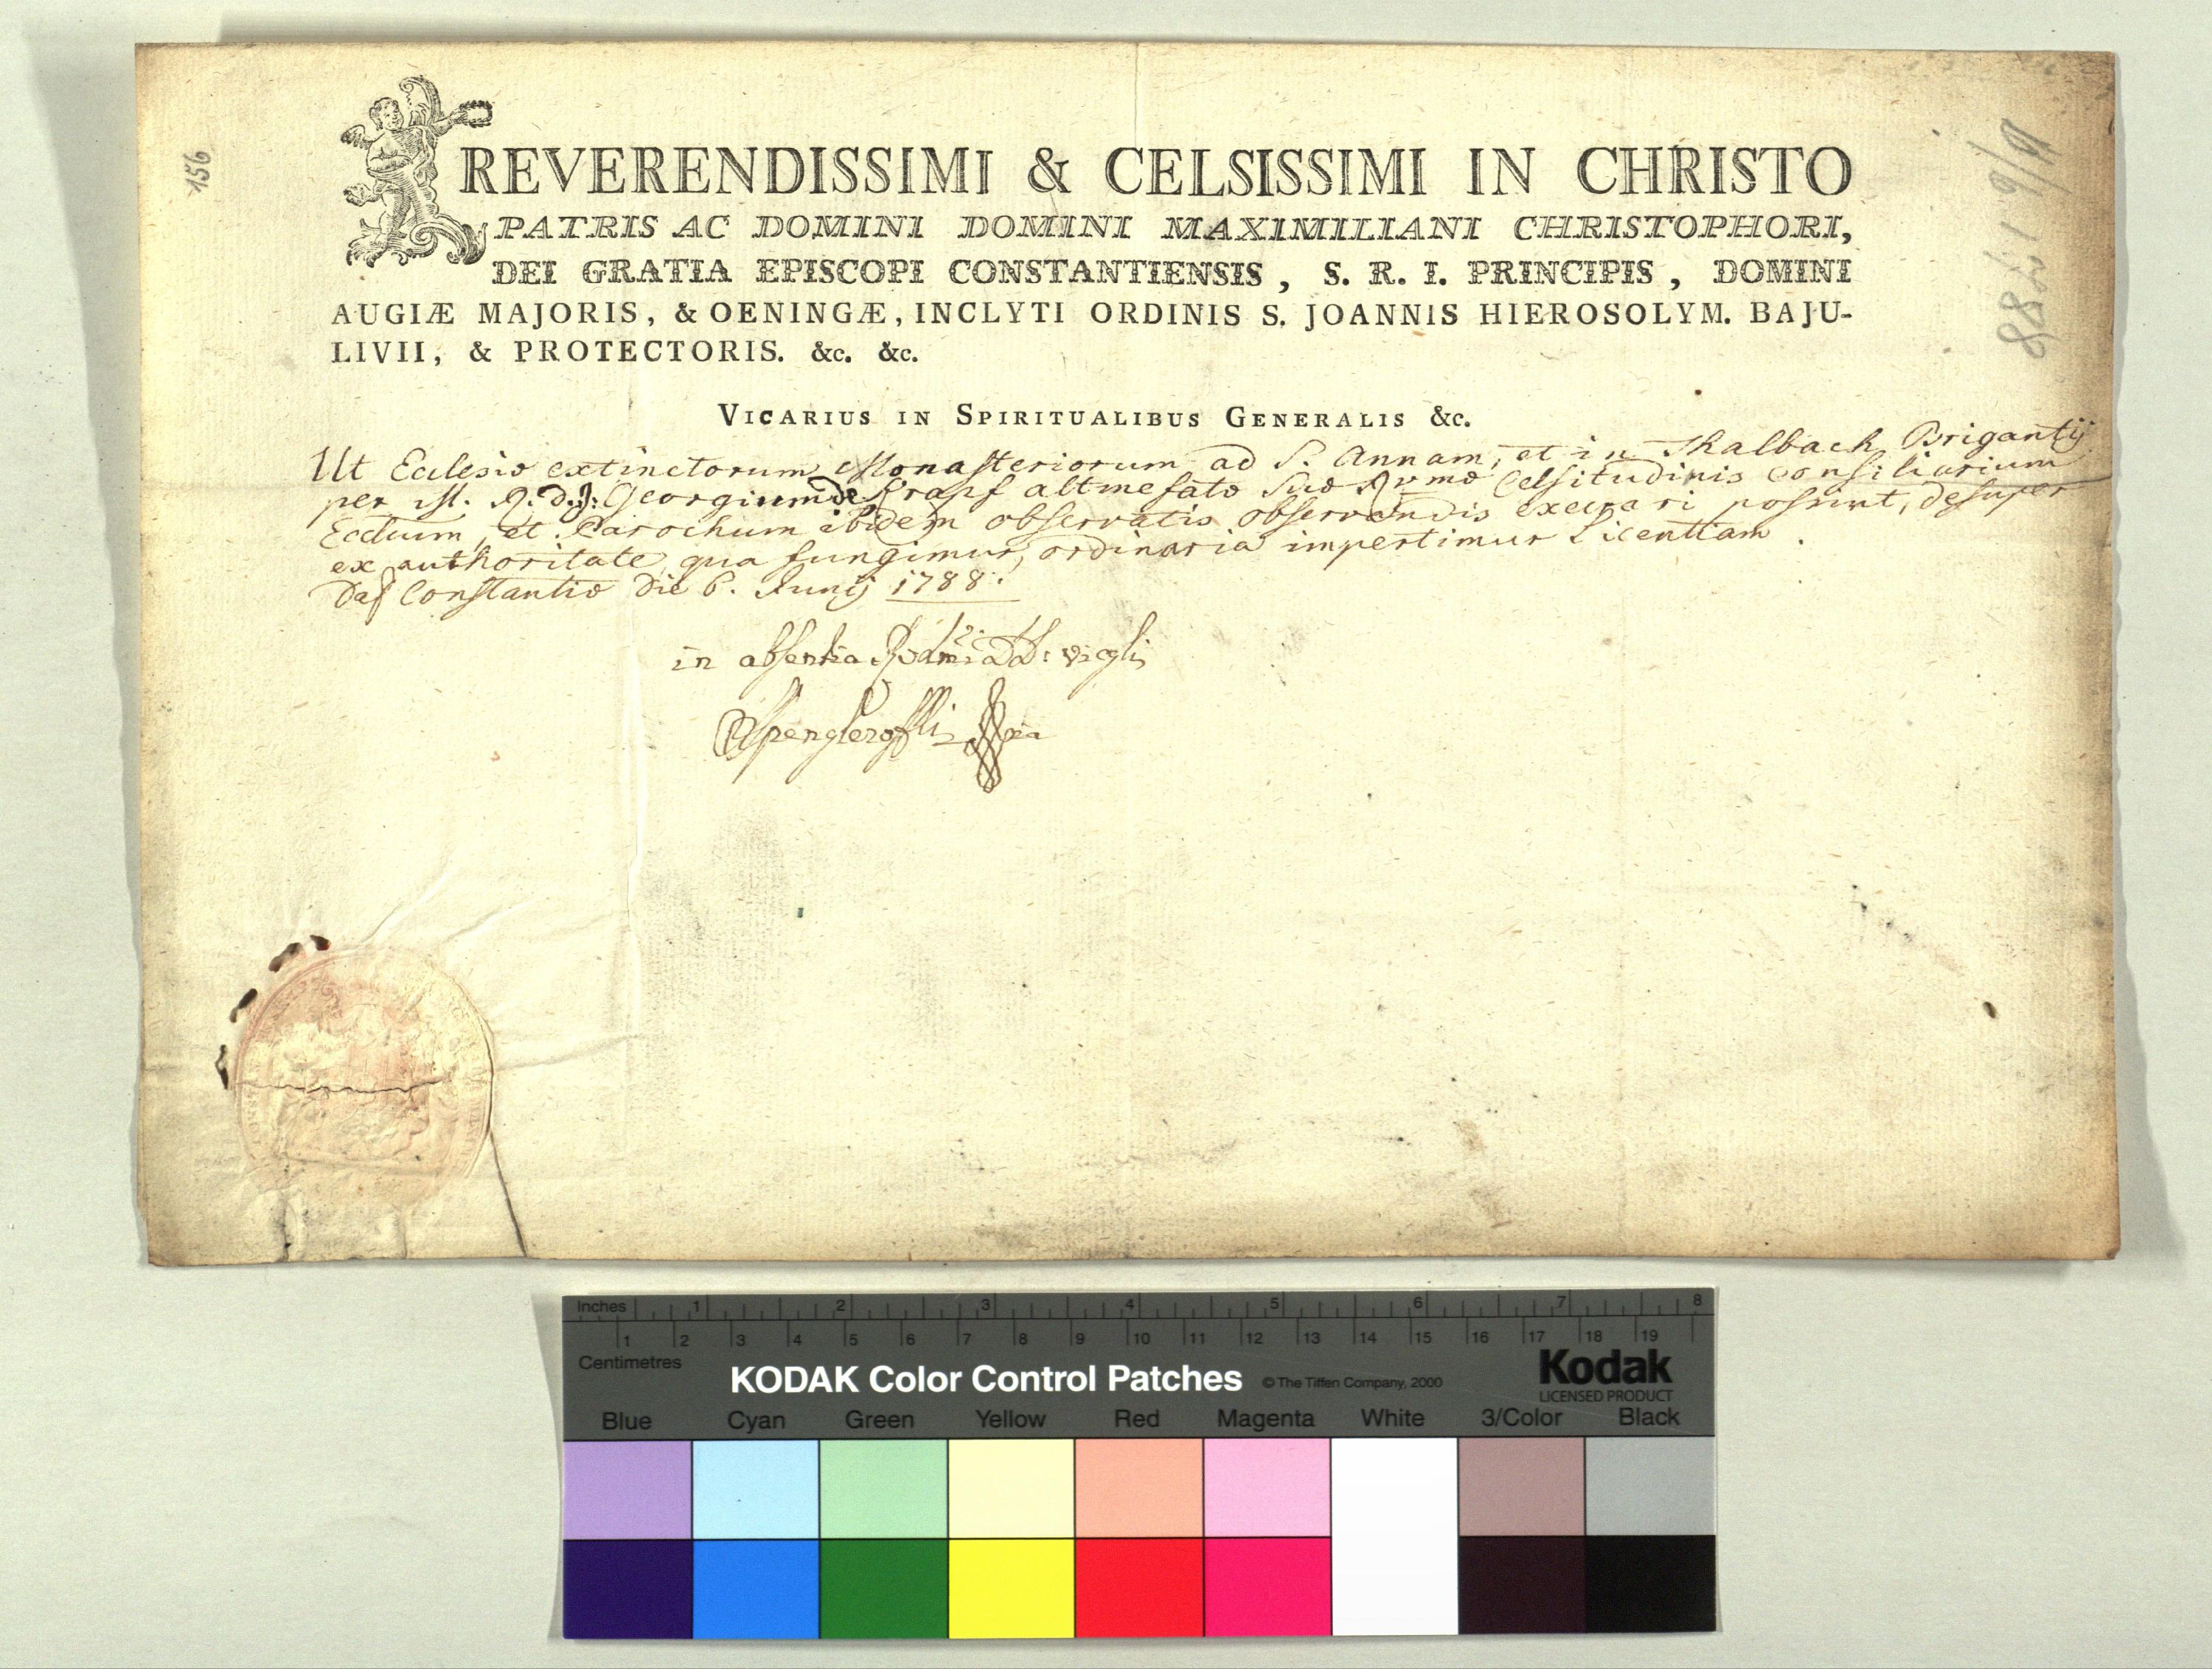 156
6/VI 1788
REVERENDISSIMI & CELSISSIMI IN CHRISTO
PATRIS AC DOMINI DOMINI MAXIMILIANI CHRISTOPHORI,
DEI GRATIA EPISCOPI CONSTANTIENSIS, S. R. I. PRINCIPIS, DOMINI
AUGIÆ MAJORIS, & OENINGÆ, INCLYTI ORDINIS S. JOANNIS HIEROSOLYM. BAJU-
LIVII, & PROTECTORIS. &c. &c.
VICARIUS IN SPIRITUALIBUS GENERALIS &c.
Ut Ecclesiæ extinctorum Monasteriorum ad S. Annam, et in Thalbach Brigantij
per A. R. D. J. Georgium de Krapf altmefatæ Suæ Rvmæ Celsitudinis Consiliarium
Ecclum, et Parochum ibidem observatis observandis execrari possint, desuper
ex authoritate, qua fungimur, ordinaria impertimur Licentiam.
Dat Constantiæ die 6. Junij 1788.
in absentia Rdmi DD: vicglis
Inches 1 2 3 4 5 6 7 8
1 2 3 4 5 6 7 8 9 10 11 12 13 14 15 16 17 18 19
Centimetres
KODAK Color Control Patches © The Tiffen Company, 2000
Kodak
LICENSED PRODUCT
Blue Cyan Green Yellow Red Magenta White 3/Color Black